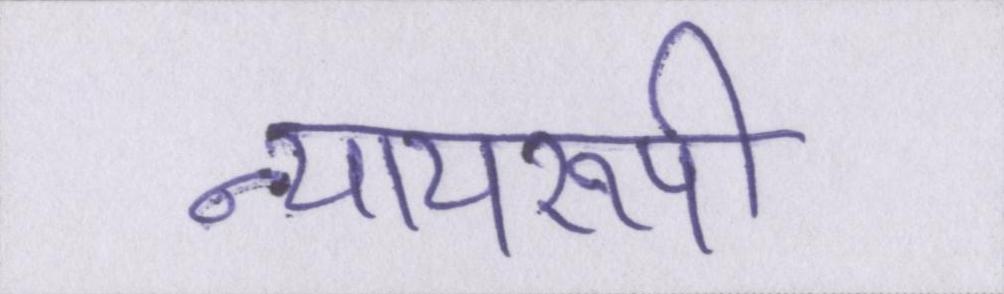 न्यायरूपी